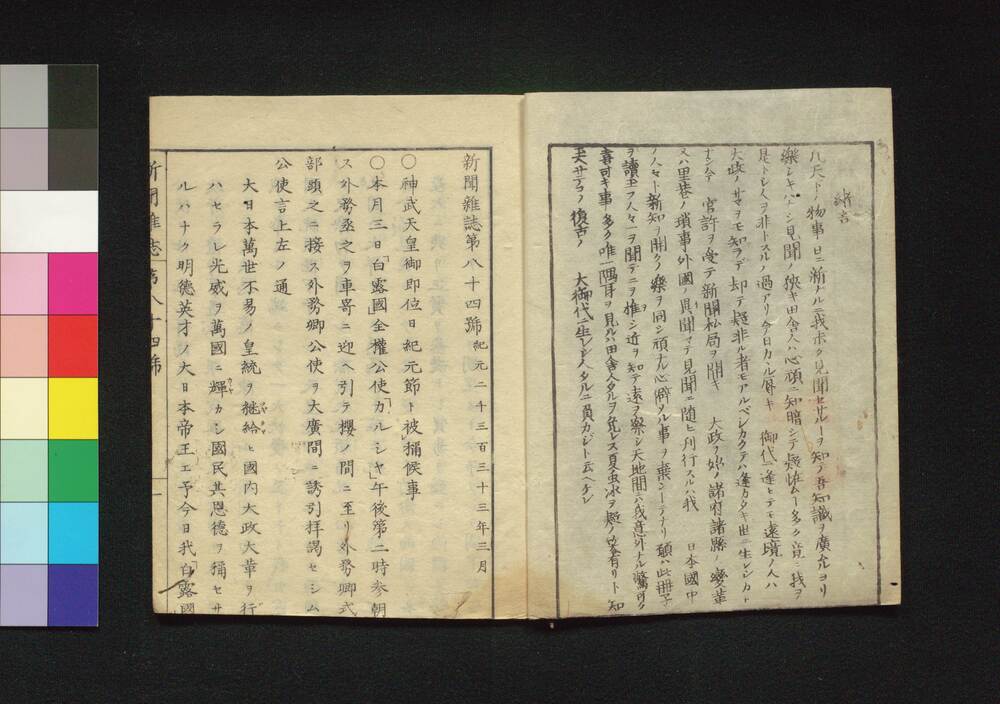 緒言
凡天下ノ物事日ニ新ナルニ我ホク見聞セサルヿヲ知ラ吾知識ヲ廣允ヨリ
樂シキハナシ見聞ノ狹キ田舎人ハ心頑ニ知暗シテ疑怪ムヿ多ク竟ニ我ヲ
是トシ人ヲ非トスルノ過アリ今日カヽル尊キ 御代ニ逢ヒテモ遠境ノ人ハ
大政ノサマヲモ知ラデ却テ疑非ル者モアルベシカクテハ逢カタキ世ニ生レシカヒ
ナシ今 官許ヲ受テ新聞紙局ヲ開キ 大政ヲ始メ諸府諸縣ノ變革
又ハ里巷ノ瑣事外國ノ異聞マテ見聞ニ隨ヒ刊行スルハ我 日本國中
ノ人々ト新知ヲ開クノ樂ヲ同シ頑ナル心僻メル事ヲ棄シヿテナリ願ハ此冊子
ヲ讀玉フ人々一ヲ聞テ二ヲ推シ近ヲ知テ遠ヲ察シ天地間ニハ我意外ナル驚可ク
喜可キ事多ク唯一隅耳ヲ見ルハ田舎人タルヲ免レス夏虫氷ヲ疑ノ笑有リト知
天世ニコノ復古ノ 大御代ニ生レシ人タルニ負カジト云ヘケレ
新聞雜誌第八十四號 紀元二千三百三十三年三月
〇神武天皇御即位日紀元節ト被稱候事
〇本月三日「白露國」全權公使「カルシヤ」午後第二時參朝
ス外務丞之ヲ車寄ニ迎ヘ引テ櫻ノ間ニ至リ外務卿式
部頭之ニ接ス外務卿公使ヲ大廣間ニ誘引拜謁セシム
公使言上左ノ通
大日本萬世不易ノ皇統ヲ継給ヒ國内大政大革ヲ行
ハセラレ光威ヲ萬國ニ輝カシ國民其恩德ヲ稱セサ
ルハナク明德英才ノ大日本帝王エ予今日我「白露國
新聞雜志 第八十四號 一